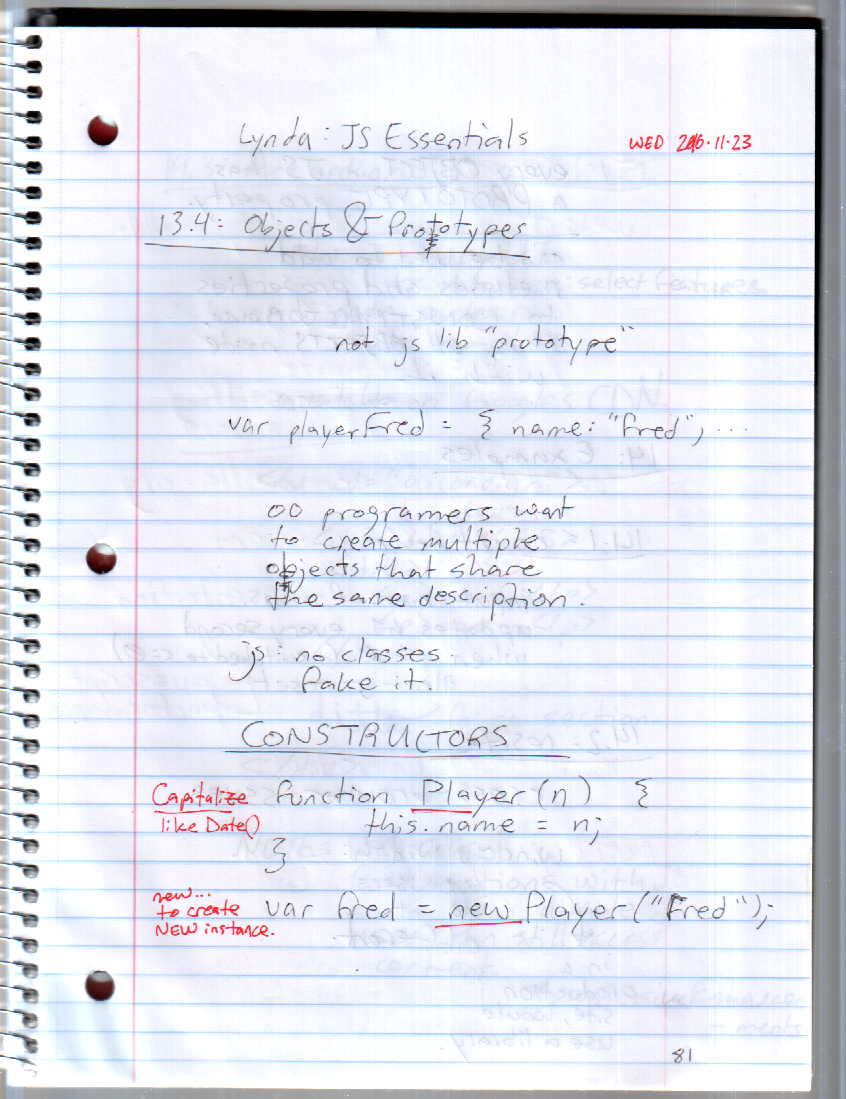 Lynda: JS Essentials
WED 2016.11.23
13.4: Objects & Prototypes
not js lib "prototype"
var playerFred = { name: "Fred", ...
OO programers want
to create multiple
objects that share
the same description.
js: no classes.
fake it.
CONSTRUCTORS
Capitalize function Player(n) {
like Date() this.name = n;
}
new...
to create var fred = new Player("Fred");
NEW instance.
81